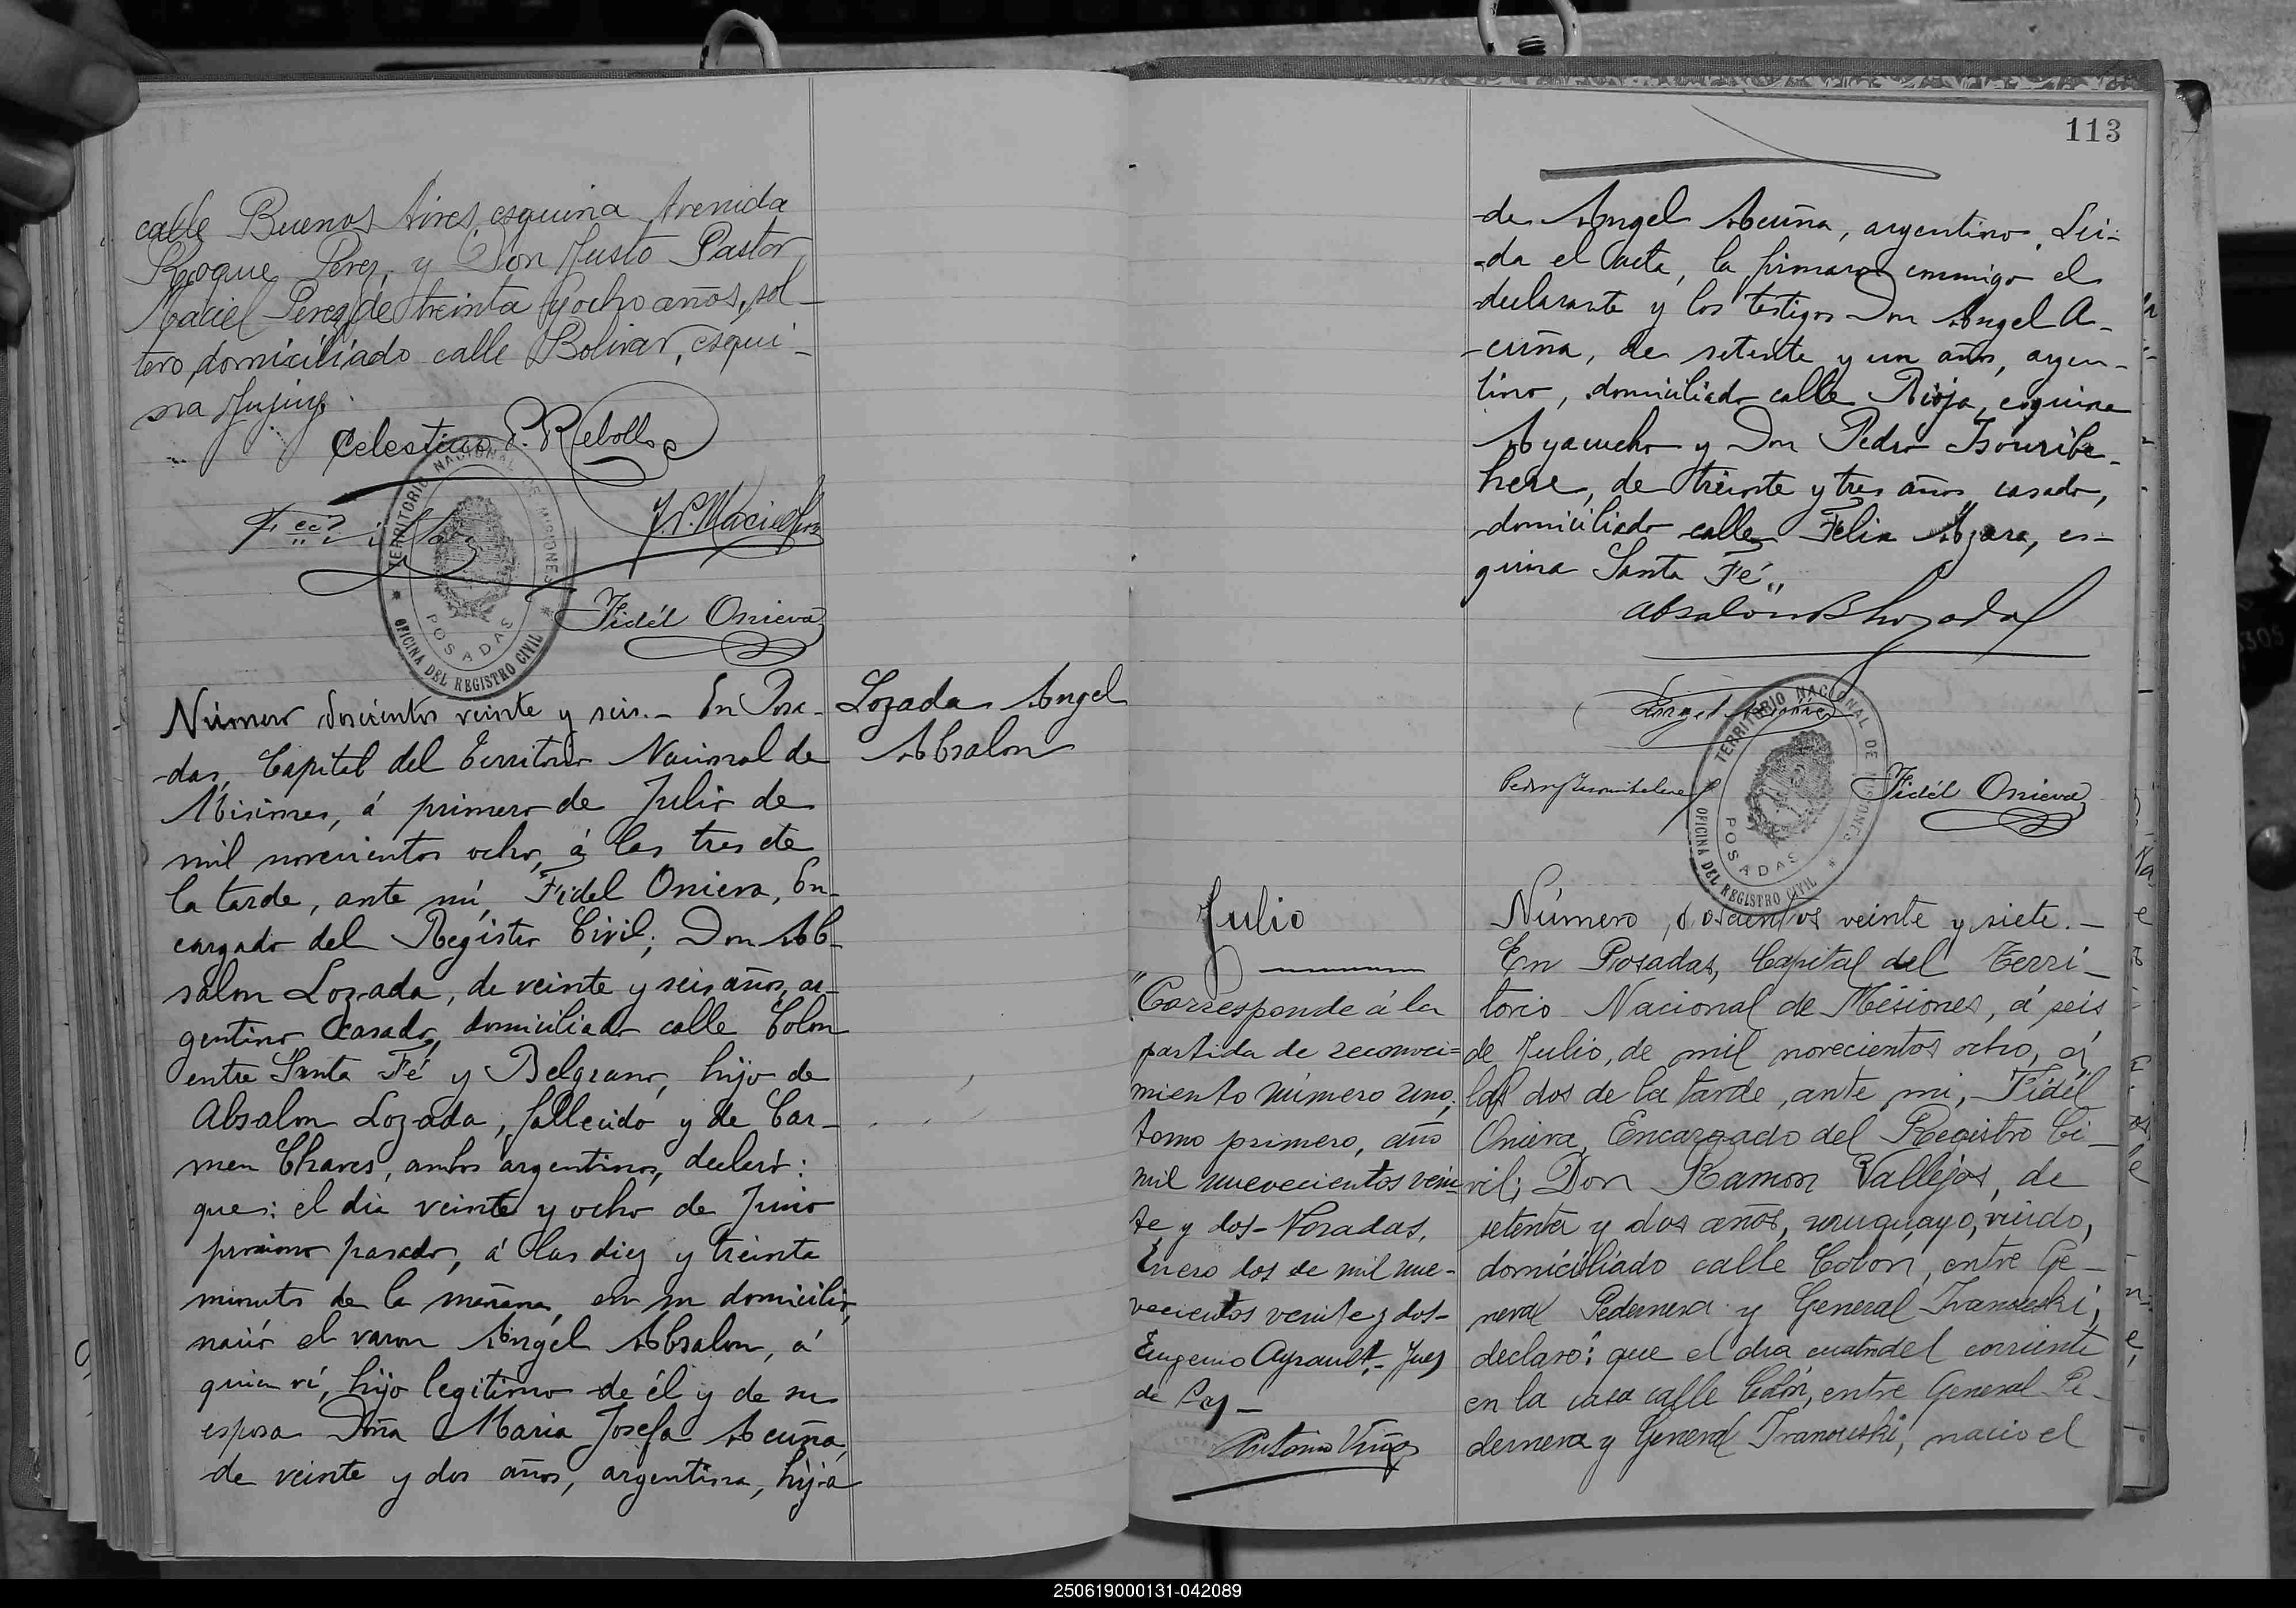 calle Buenos Aires esquina Avenida
Roque Perez, y Don Justo Pastor
Maciel Perez, de treinta y ocho años, sol-
tero, domiciliado calle Bolivar, esqui-
na Jujuy.
Celestino P. Rebollo
J. P. Maciel Perez
Fidél Onieva
TERRITORIO NACIONAL DE MISIONES
POSADAS
OFICINA DEL REGISTRO CIVIL
Número doscientos veinte y seis.- En Posa-
das, Capital del Territorio Nacional de
Misiones, á primero de Julio de
mil novecientos ocho, á las tres de
la tarde, ante mí, Fidel Onieva, En-
cargado del Registro Civil; Don Ab-
salon Lozada, de veinte y seis años, ar-
gentino casado, domiciliado calle Colon
entre Santa Fé y Belgrano, hijo de
Absalon Lozada, fallecido y de Car-
men Chaves, ambos argentinos, declaró:
que: el dia veinte y ocho de Junio
proximo pasado, á las diez y treinta
minutos de la mañana, en su domicilio,
nació el varon Angel Absalon, á
quien ví, hijo legitimo de él y de su
esposa Doña Maria Josefa Acuña,
de veinte y dos años, argentina, hija
Lozada Angel
Absalon
113
de Angel Acuña, argentino. Lei-
da el acta, la firmaron conmigo el
declarante y los testigos Don Angel A-
cuña, de setenta y un años, argen-
tino, domiciliado calle Rioja, esquina
Ayacucho y Don Pedro Isouribe-
here, de treinta y tres años, casado,
domiciliado calle Felix Azara, es-
quina Santa Fé.,
Absalon B Lozada
Angel Acuña
Fidél Onieva
TERRITORIO NACIONAL DE MISIONES
POSADAS
OFICINA DEL REGISTRO CIVIL
Julio
"Corresponde á la
partida de reconoci=
miento número uno,
tomo primero, año
mil nuevecientos vein-
te y dos- Posadas,
Enero dos de mil nue-
vecientos veinte y dos-
Eugenio Ayrault- Juez
de Paz-
Número, doscientos veinte y siete.-
En Posadas, Capital del Terri-
torio Nacional de Misiones, á seis
de Julio, de mil novecientos ocho, á
las dos de la tarde, ante mi, Fidél
Onieva, Encargado del Registro Ci-
vil; Don Ramon Vallejos, de
setenta y dos años, uruguayo, viudo,
domiciliado calle Colon, entre Ge-
neral Pedernera y General Ivanouski,
declaró: que el dia cuatro del corriente
en la casa calle Colón, entre General Pe-
dernera y General Ivanouski, nacio el
250619000131-042089